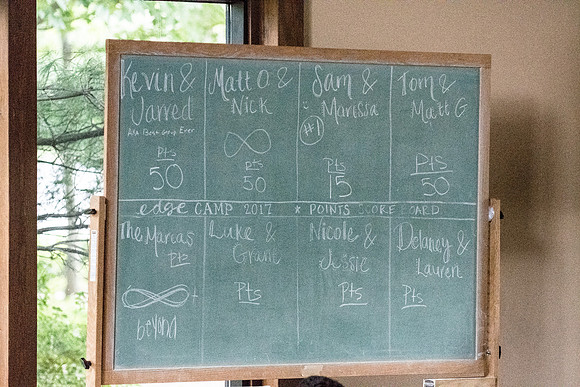 Kevin &
Jarred
AKA Best Group Ever
Pts
50
Matt O &
Nick
∞
Pts
50
Sam &
Marissa
#1
Pts
15
Tom &
Matt G
Pts
50
edge CAMP 2017 * POINTS SCORE BOARD
The Marias
Pts
∞ +
beyond
Luke &
Grant
Pts
Nicole &
Jessie
Pts
Delaney &
Lauren
Pts